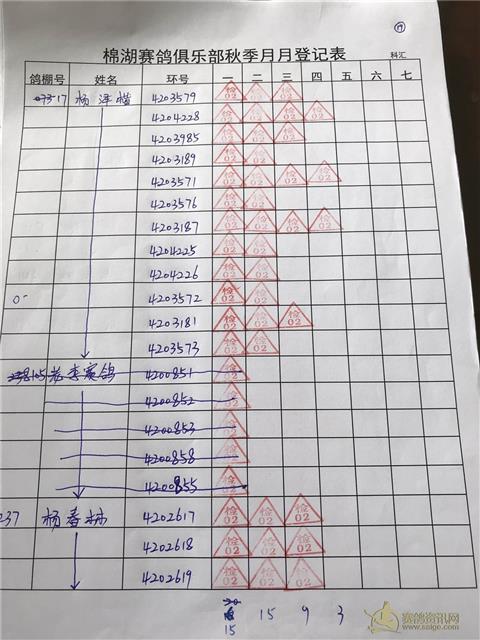 ⑰
棉湖赛鸽俱乐部秋季月月登记表 科汇
鸽棚号 姓名 环号 一 二 三 四 五 六 七
073-17 杨泽楷 4203579 检02 检02 检02
4204228 检02 检02 检02 检02
4203985 检02 检02 检02
4203189 检02 检02
4203571 检02 检02 检02 检02
4203576 检02 检02
4203187 检02 检02 检02 检02
4204225 检02 检02
4204226 检02 检02
0 4203572 检02 检02
4203181 检02 检02 检02
4203573 检02 检02
105 赛鸽 4200851 检02
4200852 检02
4200853 检02
4200858 检02
4200855 检02
237 杨春林 4202617 检02 检02 检02
4202618 检02 检02 检02
4202619 检02 检02 检02
15 9 3
15
赛鸽资讯网
www.saige.com